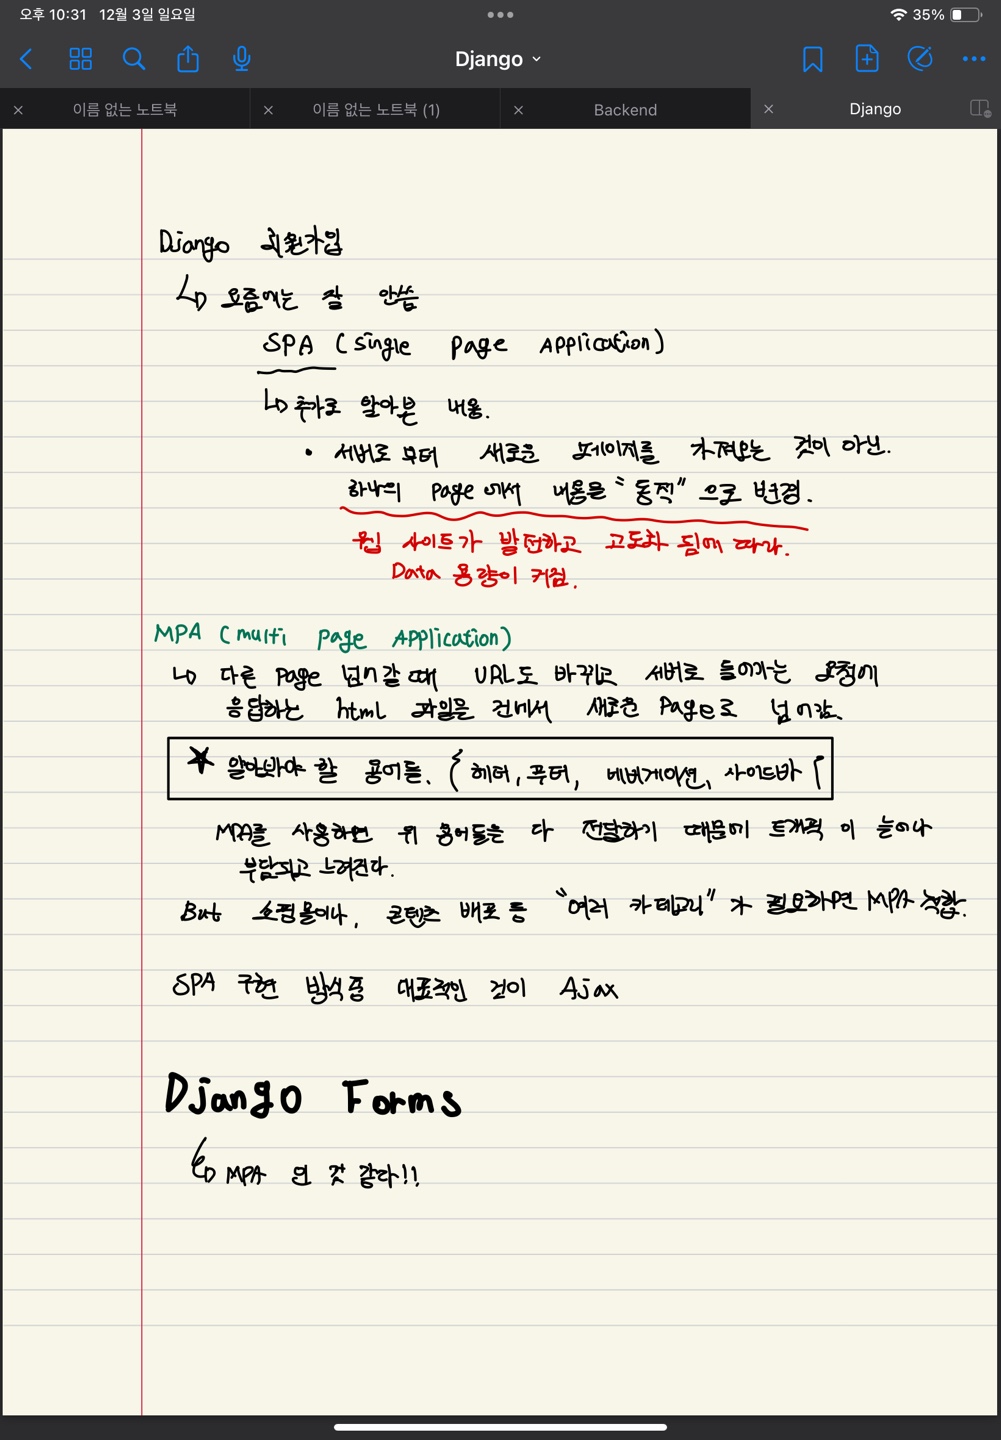 오후 10:31 12월 3일 일요일
35%
Django
이름 없는 노트북
이름 없는 노트북 (1)
Backend
Django
Django 회원가입
요즘에는 잘 안씀
SPA (Single Page Application)
추가로 알아본 내용.
• 서버로 부터 새로운 페이지를 가져오는 것이 아닌.
하나의 Page에서 내용을 "동적"으로 변경.
웹 사이트가 발전하고 고도화 됨에 따라.
Data 용량이 커짐.
MPA (multi Page Application)
다른 Page 넘어갈 때 URL도 바뀌고 서버로 들어가는 요청에
응답하는 html 파일을 건네서 새로운 Page로 넘어감.
★ 알아봐야 할 용어들. { 헤더, 푸터, 네비게이션, 사이드바
MPA를 사용하면 위 용어들을 다 전달하기 때문에 트래픽 이 늘어나
부담되고 느려진다.
But 쇼핑몰이나, 콘텐츠 배포 등 "여러 카테고리"가 필요하면 MPA 적합.
SPA 구현 방식중 대표적인 것이 Ajax
Django Forms
MPA 인 것 같다!!